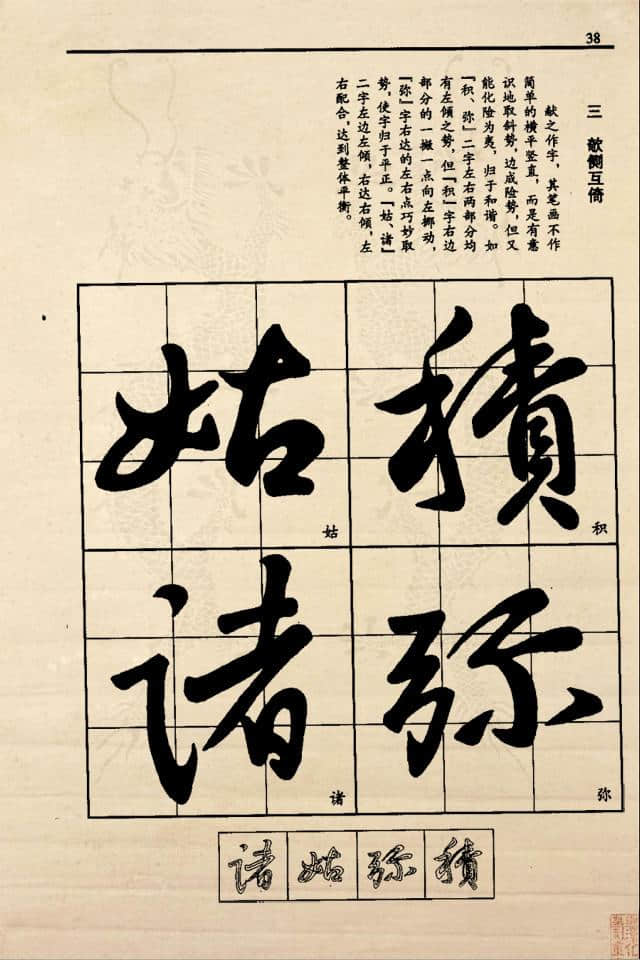 38
三 欹侧互倚
献之作字，其笔画不作
简单的横平竖直，而是有意
识地取斜势，边成险势，但又
能化险为夷，归于和谐。如
『积、弥』二字左右两部分均
有左倾之势，但『积』字右边
部分的一撇一点向左挪动，
『弥』字右达的左右点巧妙取
势，使字归于平正。『姑、诸』
二字左边左倾，右达右倾，左
右配合，达到整体平衡。
積
积
弥
弥
姑
姑
諸
诸
諸 姑 弥 積